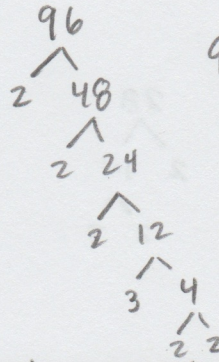 96
2 48
2 24
2 12
3 4
2 2